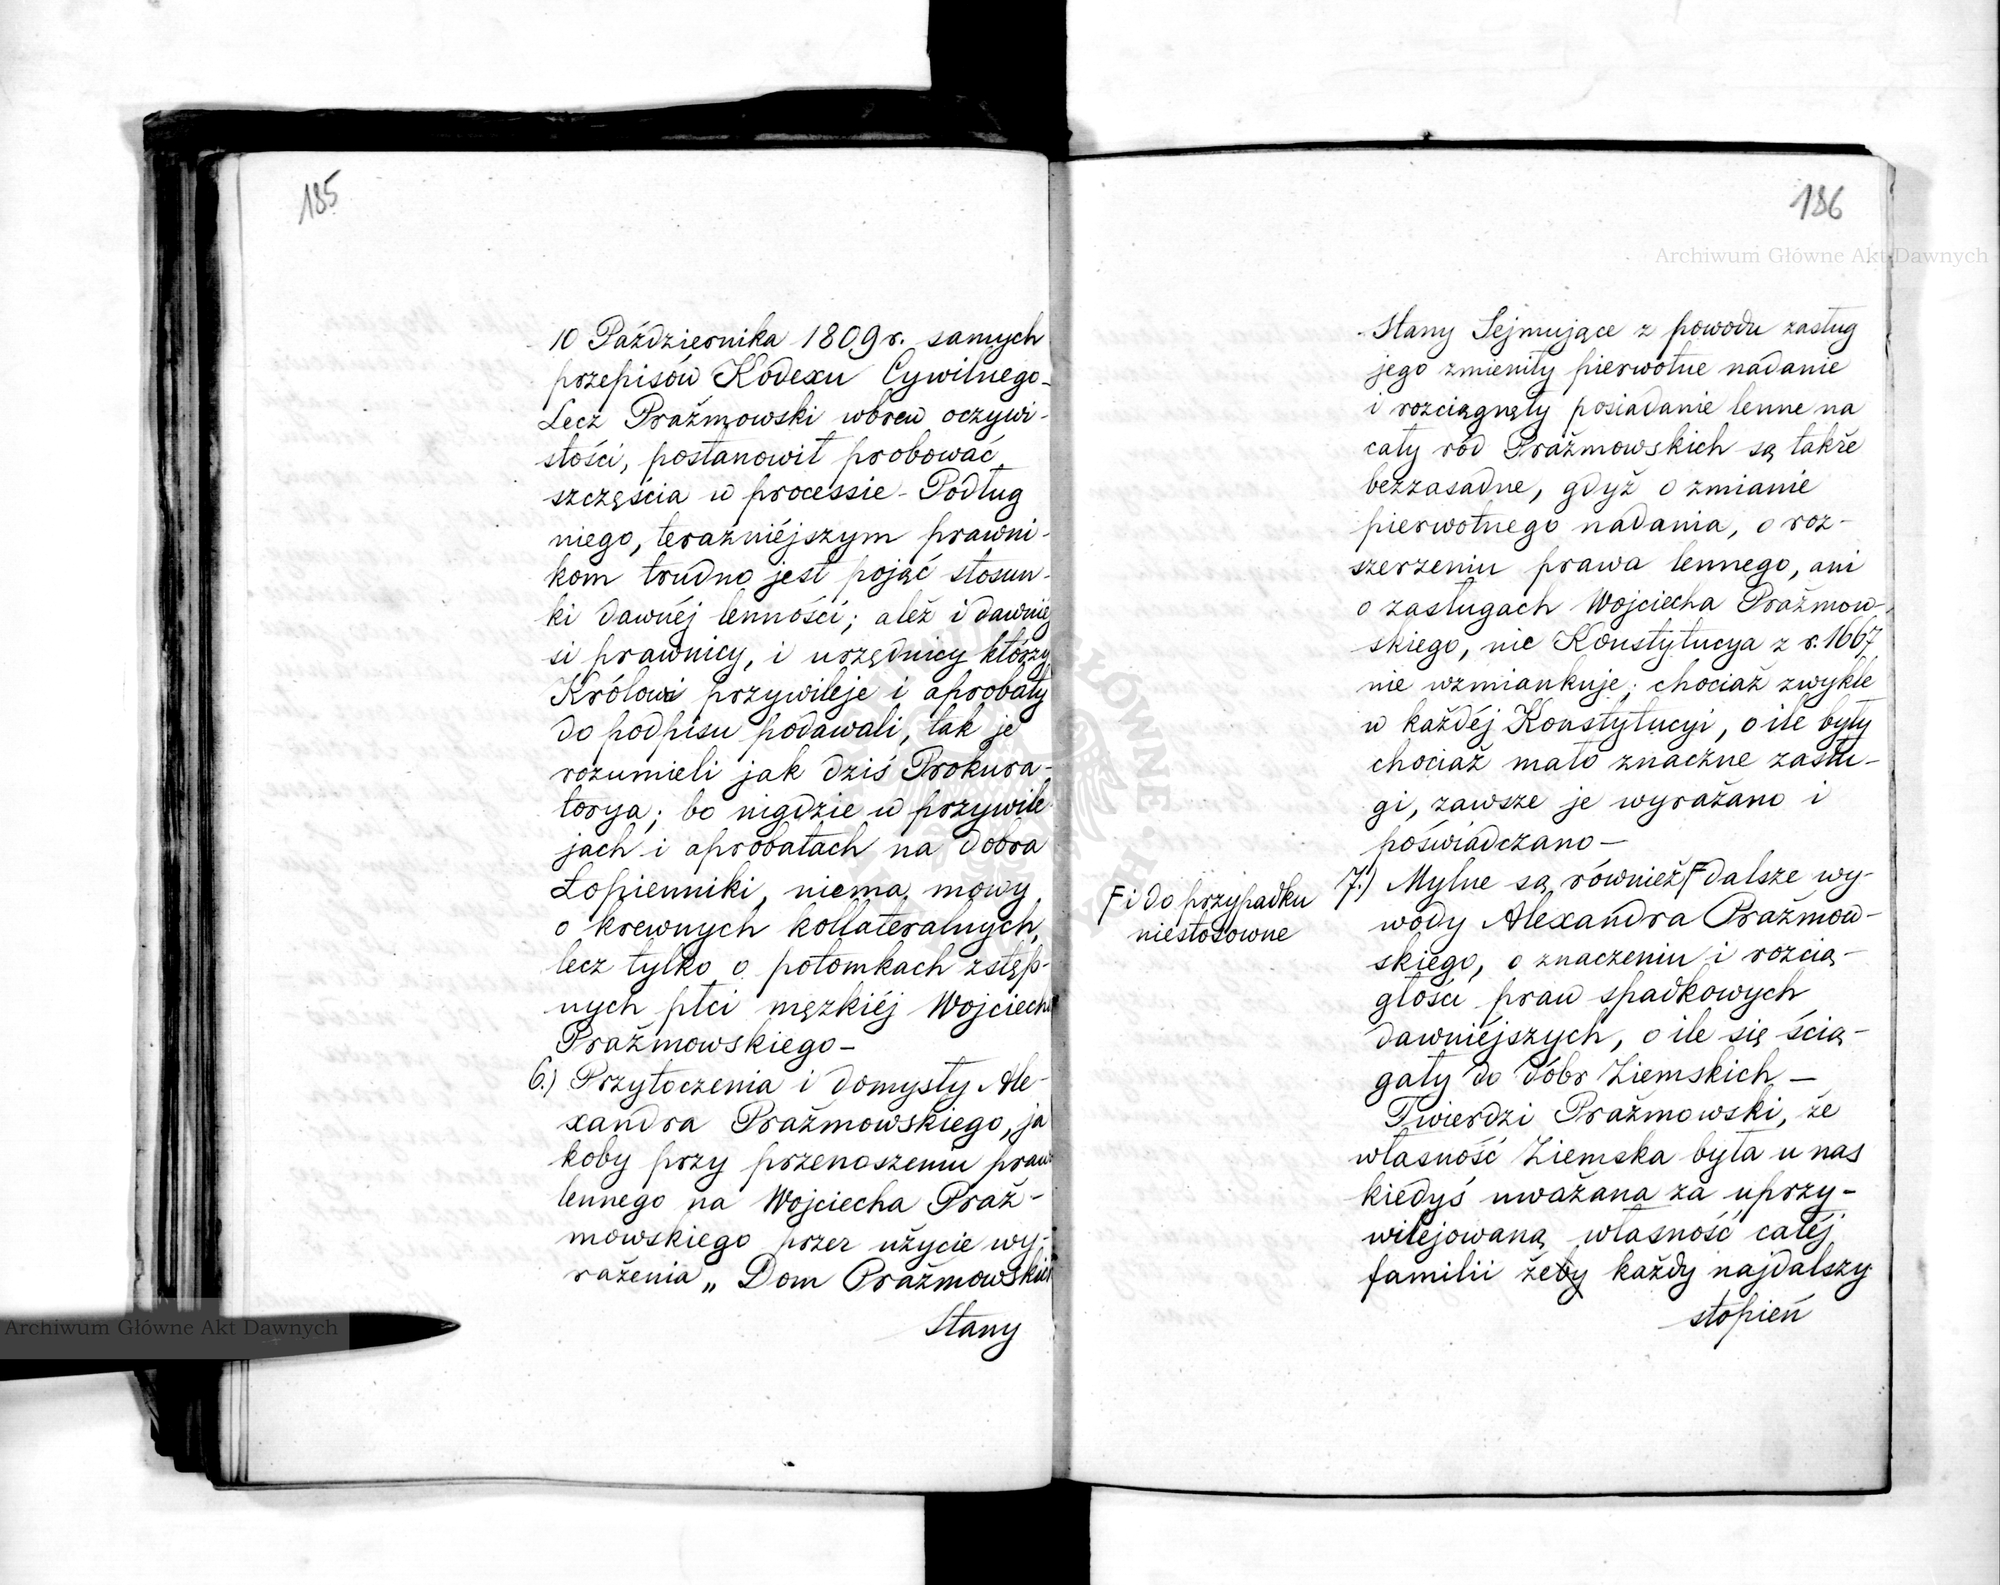 185
10 Października 1809 r. samych
przepisów Kodexu Cywilnego_
Lecz Prażmowski wbrew oczywi-
stości, postanowił probować
szczęścia w processie - Podług
niego, teraźniéjszym prawni-
kom trudno jest pojąć stosun-
ki dawnéj lenności; aleź i dawniej
si prawnicy, i urzędnicy którzy
Królowi przywileje i aprobaty
do podpisu podawali, tak je
rozumieli jak dziś Prokura-
torya; bo nigdzie w przywile
jach i aprobatach na dobra
Łopienniki, niema mowy
o krewnych kollateralnych,
lecz tylko o potomkach zstęp-
nych płci męzkiéj Wojciecha
Prażmowskiego_
6.) Przytoczenia i domysły Ale-
xandra Prażmowskiego, ja
koby przy przenoszeniu praw
lennego na Wojciecha Praż-
mowskiego przez użycie wy-
rażenia „ Dom Prażmowskich
Stany
186
Stany Sejmujące z powodu zasług
jego zmieniły pierwotne nadanie
i rozciągnęły posiadanie lenne na
cały ród Prażmowskich są także
bezzasadne, gdyż o zmianie
pierwotnego nadania, o roz-
szerzeniu prawa lennego, ani
o zasługach Wojciecha Prażmow-
skiego, nic Konstytucya z r. 1667
nie wzmiankuje; chociaż zwykle
w każdéj Konstytucyi, o ile były
chociaż mało znaczne zasłu-
gi, zawsze je wyrażano i
poświadczano —
7.) Mylne są również F dalsze wy-
F i do przypadku
niestosowne
wody Alexandra Prażmow-
skiego, o znaczeniu i rozcią-
głości praw spadkowych
dawniéjszych, o ile się ścią-
gały do dóbr Ziemskich —
Twierdzi Prażmowski, że
własność Ziemska była u nas
kiedyś uważana za uprzy-
wilejowaną własność całéj
familii żeby każdy najdalszy
stopień
Archiwum Główne Akt Dawnych
Archiwum Główne Akt Dawnych